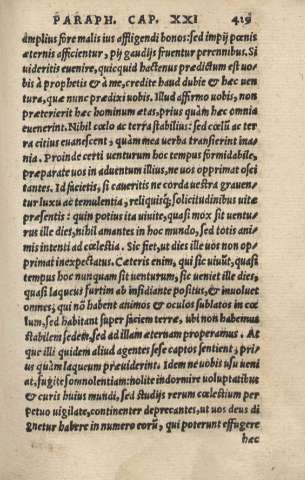 PARAPH. CAP. XXI 419
amplius fore malis ius affligendi bonos: sed impij pœnis
æternis afficientur, pij gaudijs fruentur perennibus. Si
uideritis euenire, quicquid hactenus prædictum est uo-
bis à prophetis & à me, credite haud dubie & hæc uen
tura, quæ nunc prædixi uobis. Illud affirmo uobis, non
præterierit hæc hominum ætas, prius quàm hæc omnia
euenerint. Nihil cœlo ac terra stabilius: sed cœlũ ac ter
ra citius euanescent, quàm mea uerba transierint ina-
nia. Proinde certi uenturum hoc tempus formidabile,
præparate uos in aduentum illius, ne uos opprimat osci
tantes. Id facietis, si caueritis ne corda uestra grauen-
tur luxu ac temulentia, reliquisq; solicitudinibus uitæ
præsentis: quin potius ita uiuite, quasi mox sit uentu-
rus ille dies, nihil amantes in hoc mundo, sed totis ani-
mis intenti ad cœlestia. Sic fiet, ut dies ille uos non op-
primat inexpectatus. Cæteris enim, qui sic uiuũt, quasi
tempus hoc nunquam sit uenturum, sic ueniet ille dies,
quasi laqueus furtim ab insidiante positus, & inuoluet
omnes, qui nõ habent animos & oculos sublatos in cœ
lum, sed habitant super faciem terræ, ubi non habemus
stabilem sedem, sed ad illam æternam properamus. At
que illi quidem aliud agentes sese captos sentient, pri-
us quàm laqueum præuiderint. Idem ne uobis usu ueni
at, fugite somnolentiam: nolite indormire uoluptatibus
& curis huius mundi, sed studijs rerum cœlestium per
petuo uigilate, continenter deprecantes, ut uos deus di
gnetur habere in numero eorũ, qui poterunt effugere
hæc